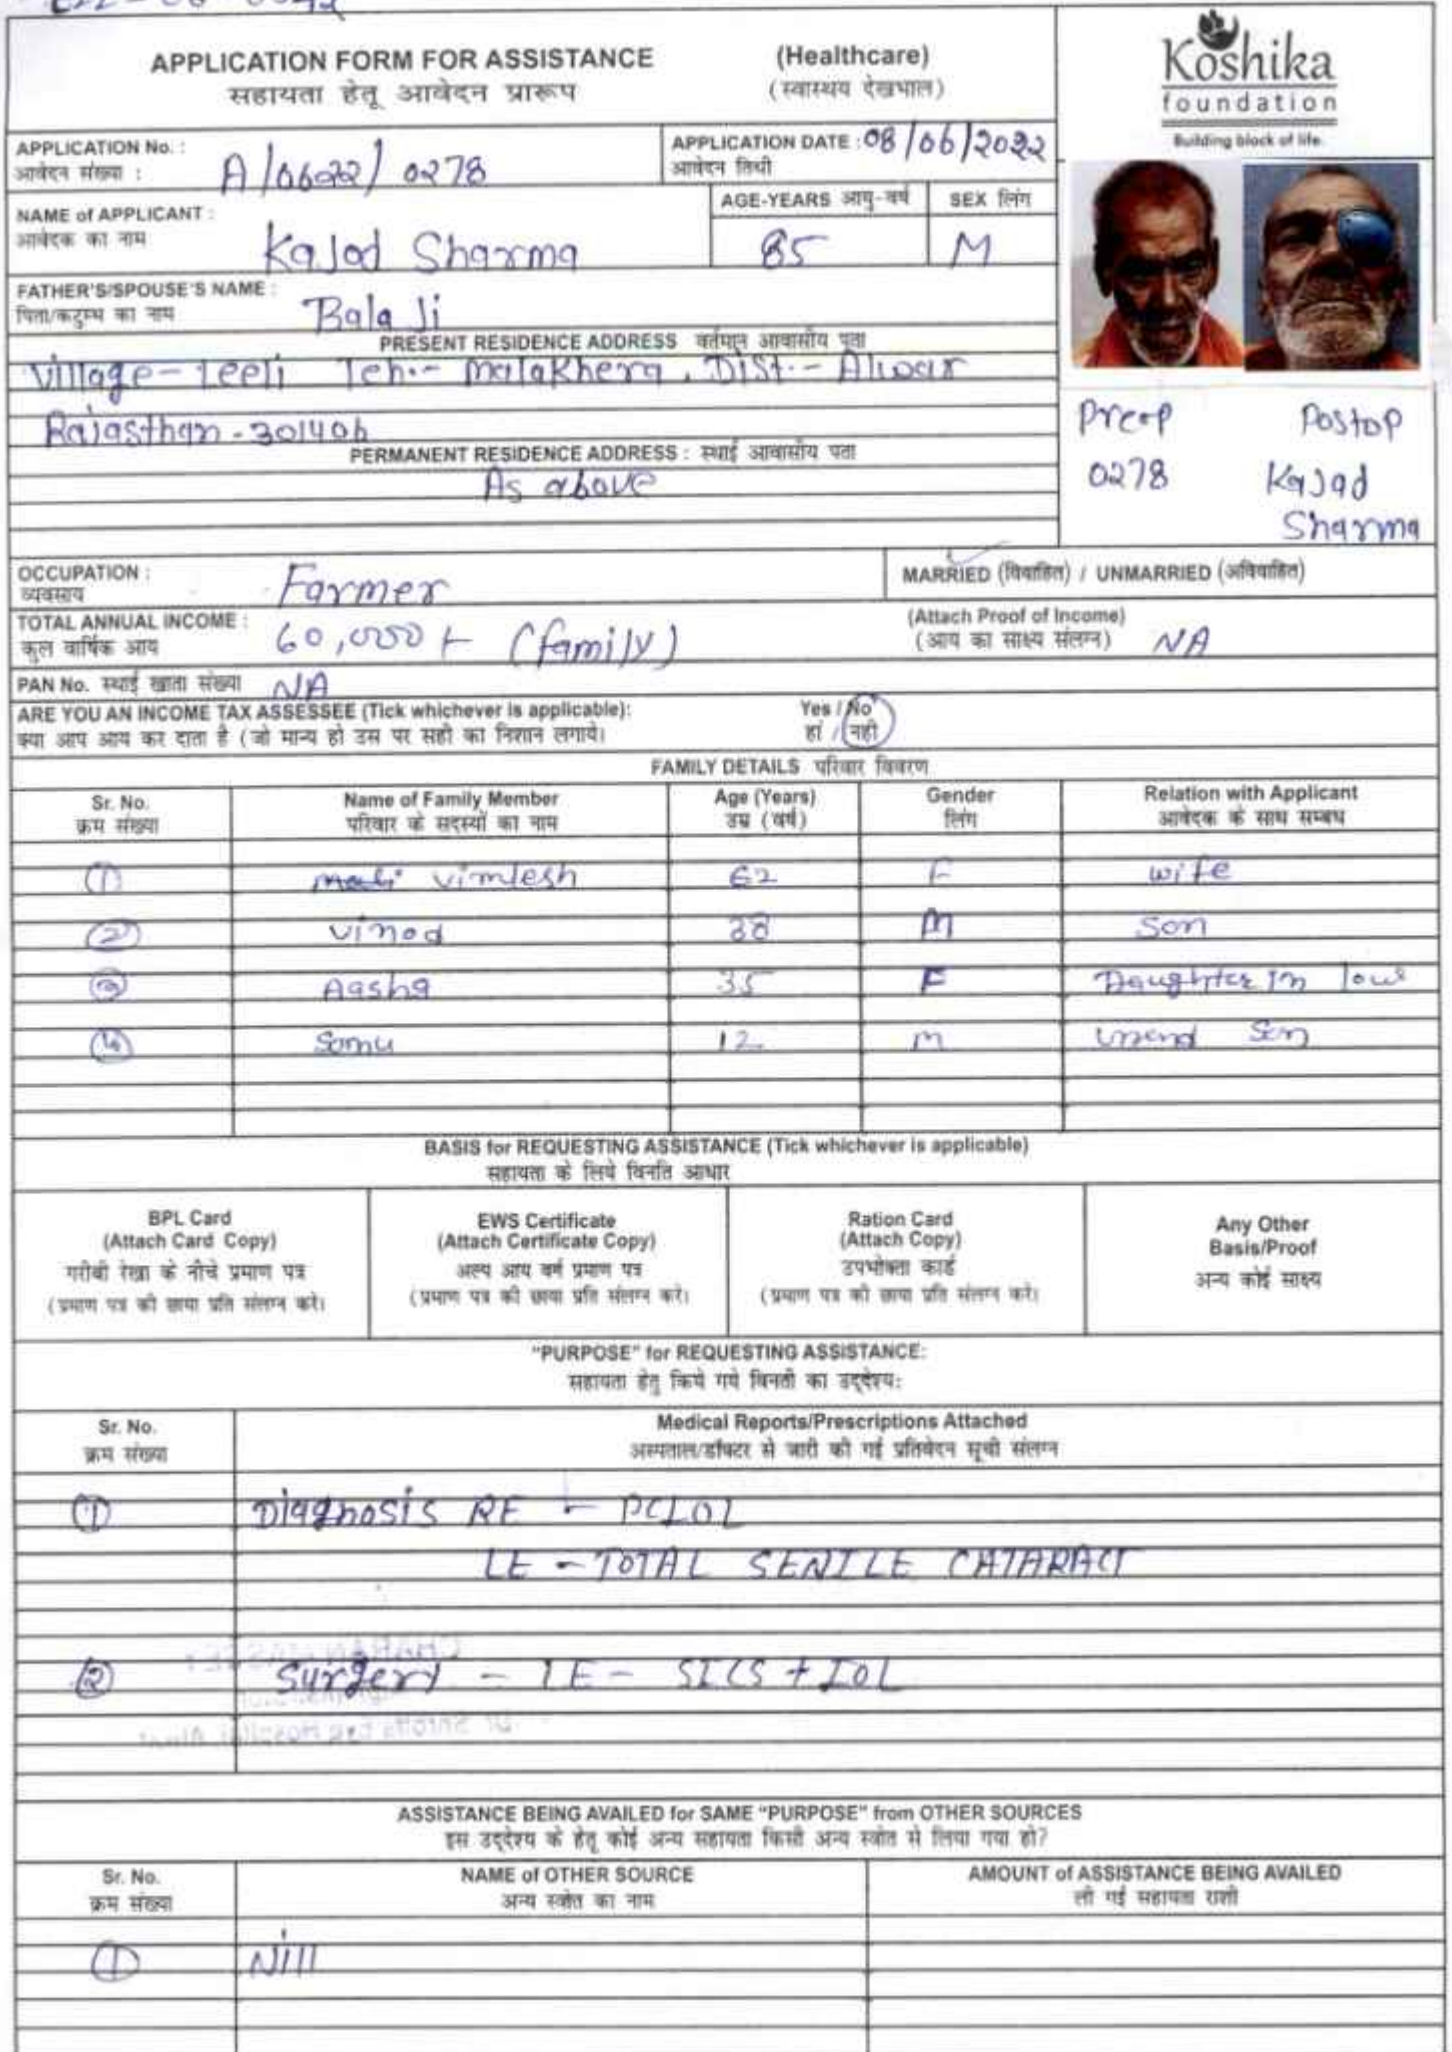 APPLICATION FORM FOR ASSISTANCE (Healthcare)
सहायता हेतू आवेदन प्रारूप (स्वास्थय देखभाल)
Koshika
foundation
Building block of life.
APPLICATION No. : A/0622/0278
आवेदन संख्या :
APPLICATION DATE : 08/06/2022
आवेदन तिथी
NAME of APPLICANT : Kajod Sharma
आवेदक का नाम
AGE-YEARS आयु-वर्ष 85
SEX लिंग M
FATHER'S/SPOUSE'S NAME : Bala Ji
पिता/कटुम्ब का नाम
PRESENT RESIDENCE ADDRESS वर्तमान आवासीय पता
Village- Leeli Teh.- Malakhera, Dist.- Alwar
Rajasthan - 301406
PERMANENT RESIDENCE ADDRESS : स्थाई आवासीय पता
As above
Preop Postop
0278 Kajad
Sharma
OCCUPATION : Farmer
व्यवसाय
MARRIED (विवाहित) / UNMARRIED (अविवाहित)
TOTAL ANNUAL INCOME : 60,000 (family)
कुल वार्षिक आय
(Attach Proof of Income)
(आय का साक्ष्य संलग्न) NA
PAN No. स्थाई खाता संख्या NA
ARE YOU AN INCOME TAX ASSESSEE (Tick whichever is applicable): Yes / No
क्या आप आय कर दाता है (जो मान्य हो उस पर सही का निशान लगाये। हां / नही
FAMILY DETAILS परिवार विवरण
Sr. No. Name of Family Member Age (Years) Gender Relation with Applicant
क्रम संख्या परिवार के सदस्यों का नाम उम्र (वर्ष) लिंग आवेदक के साथ सम्बध
(1) Vimlesh 62 F wife
(2) Vinod 38 M Son
(3) Aasha 35 F Daughter in law
(4) Somu 12 M Son
BASIS for REQUESTING ASSISTANCE (Tick whichever is applicable)
सहायता के लिये विनति आधार
BPL Card
(Attach Card Copy)
गरीबी रेखा के नीचे प्रमाण पत्र
(प्रमाण पत्र की छाया प्रति संलग्न करे।
EWS Certificate
(Attach Certificate Copy)
अल्प आय वर्ग प्रमाण पत्र
(प्रमाण पत्र की छाया प्रति संलग्न करे।
Ration Card
(Attach Copy)
उपभोक्ता कार्ड
(प्रमाण पत्र की छाया प्रति संलग्न करे।
Any Other
Basis/Proof
अन्य कोई साक्ष्य
"PURPOSE" for REQUESTING ASSISTANCE:
सहायता हेतु किये गये विनती का उद्देश्य:
Sr. No. Medical Reports/Prescriptions Attached
क्रम संख्या अस्पताल/डॉक्टर से जारी की गई प्रतिवेदन सूची संलग्न
(1) Diagnosis RE - PCIOL
LE - TOTAL SENILE CATARACT
(2) Surgery - LE - SICS + IOL
ASSISTANCE BEING AVAILED for SAME "PURPOSE" from OTHER SOURCES
इस उद्देश्य के हेतू कोई अन्य सहायता किसी अन्य स्त्रोत से लिया गया हो?
Sr. No. NAME of OTHER SOURCE AMOUNT of ASSISTANCE BEING AVAILED
क्रम संख्या अन्य स्त्रोत का नाम ली गई सहायता राशी
(1) Nill